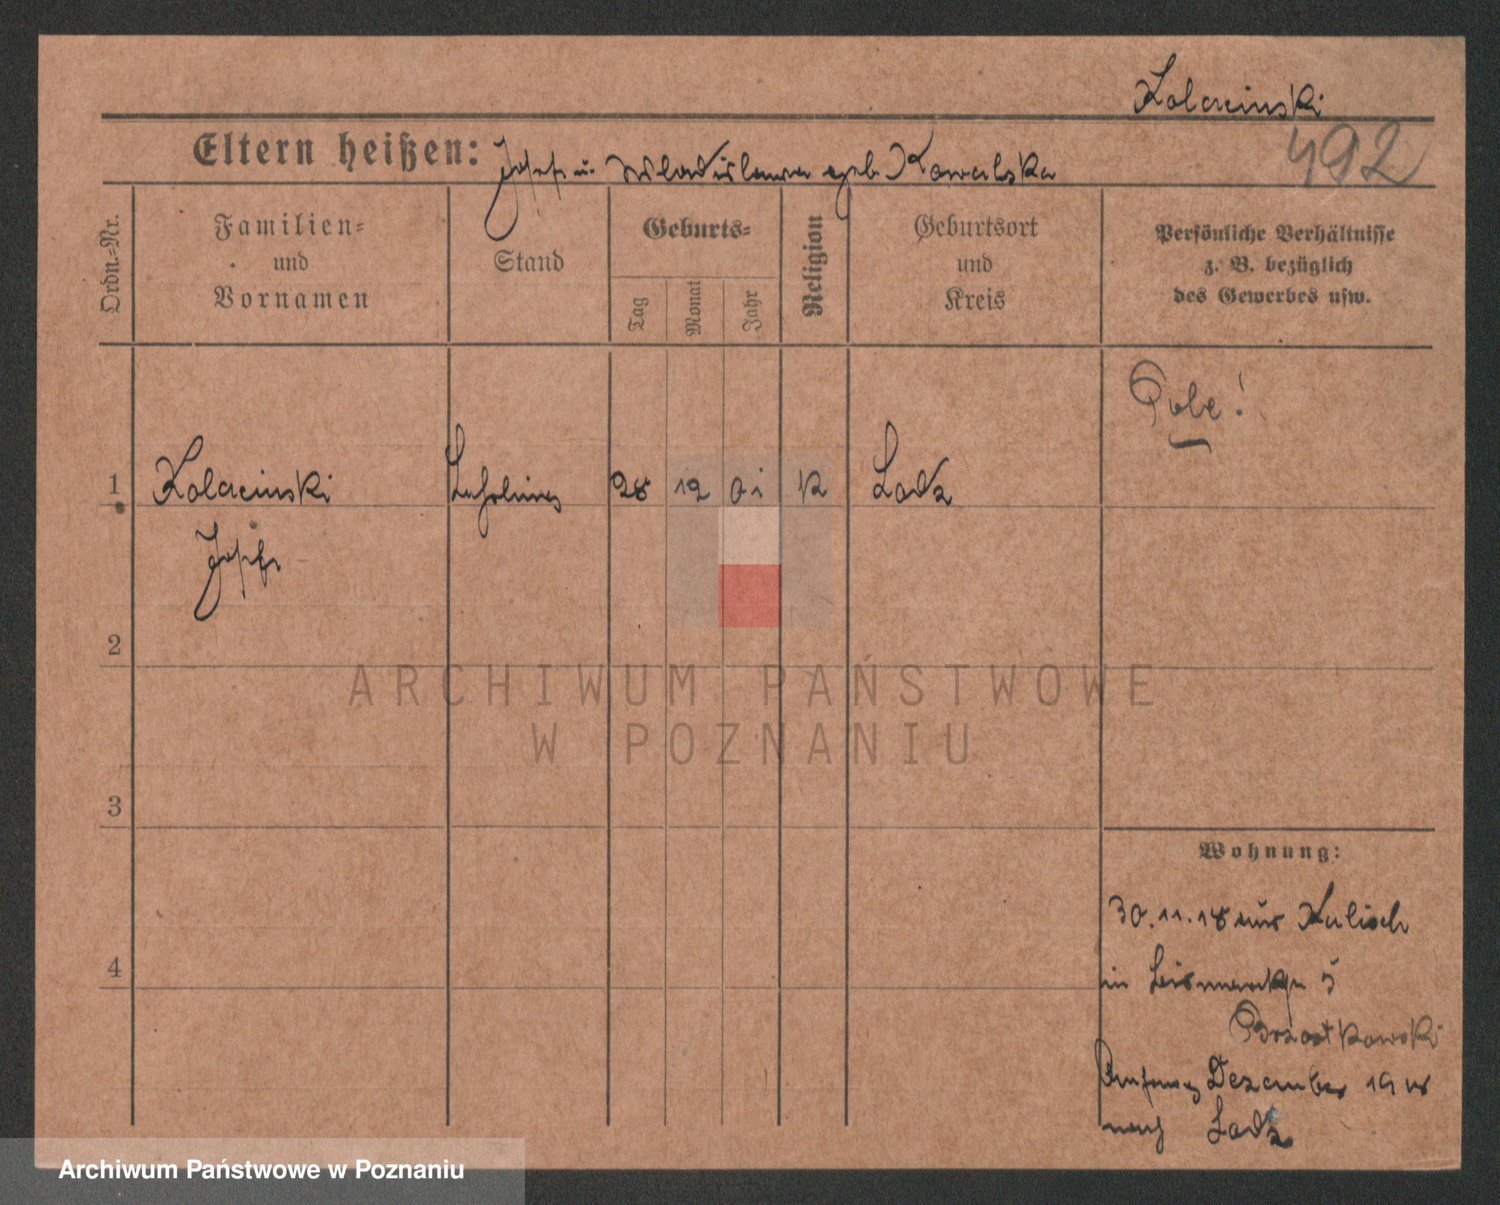 Kolacinski
492
Eltern heißen: Josef u. Wladislawa geb. Kowalska
Ordn.-Nr.
Familien-
und
Vornamen
Stand
Geburts-
Tag
Monat
Jahr
Religion
Geburtsort
und
Kreis
Persönliche Verhältnisse
z. B. bezüglich
des Gewerbes usw.
Pole!
1 Kolacinski 28 12 01 K Lodz
Josef
2
ARCHIWUM PAŃSTWOWE
W POZNANIU
3
Wohnung:
30.11.18 aus Kalisch
4
in Bismarckstr 5
Brzostkowski
Anfang Dezember 1918
nach Lodz
Archiwum Państwowe w Poznaniu